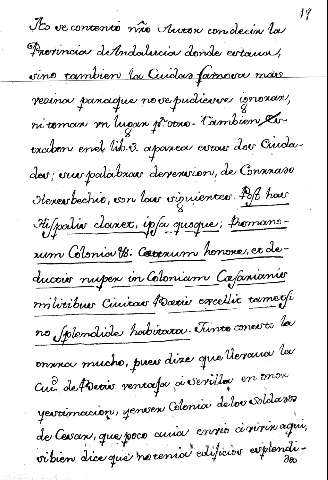 19
No se contentó nr̃o Autor con decir la
Provincia de Andalucia donde estaua,
sino tambien la Ciudad famosa mas
vecina paraque no se pudiesse ignorar,
ni tomar un lugar pr. otro. Tambien Es-
trabon en el lib. 3. aparta estas dos Ciuda-
des; sus palabras de version, de Conrraso
Heresbechio, son las siguientes. Post has
Hispalis claret, ipsa quoque; Romano-
rum Colonia &. Caeterum honore, et de-
ductis nuper in Coloniam Caesarianis
militibus Civitas Baetis excellit tametsi
no splendide habitata. Junto con esto la
onrra mucho, pues dize que lleuaua la
Ciud. de Baetis ventaja a Sevilla en onor
y estimacion, y en ser Colonia de los Soldados
de Cesar, que poco auia envió a vivir aqui,
si bien dice que no tenia edificios esplendi-
dos